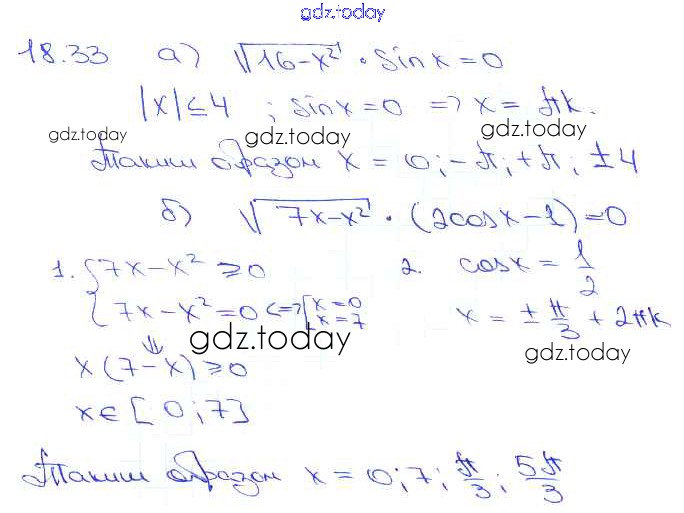 gdz.today
18.33 а) √(16-x²) · sin x = 0
|x| ≤ 4 ; sin x = 0 => x = πk.
gdz.today gdz.today gdz.today
Таким образом x = 0; -π; +π; ±4
б) √(7x-x²) · (2cosx-1) = 0
1. { 7x-x² ≥ 0 2. cosx = 1/2
7x-x² = 0 <=> [ x=0 x=7 x = ± π/3 + 2πk
gdz.today gdz.today
⇓
x(7-x) ≥ 0
x ∈ [0; 7]
Таким образом x = 0; 7; π/3; 5π/3